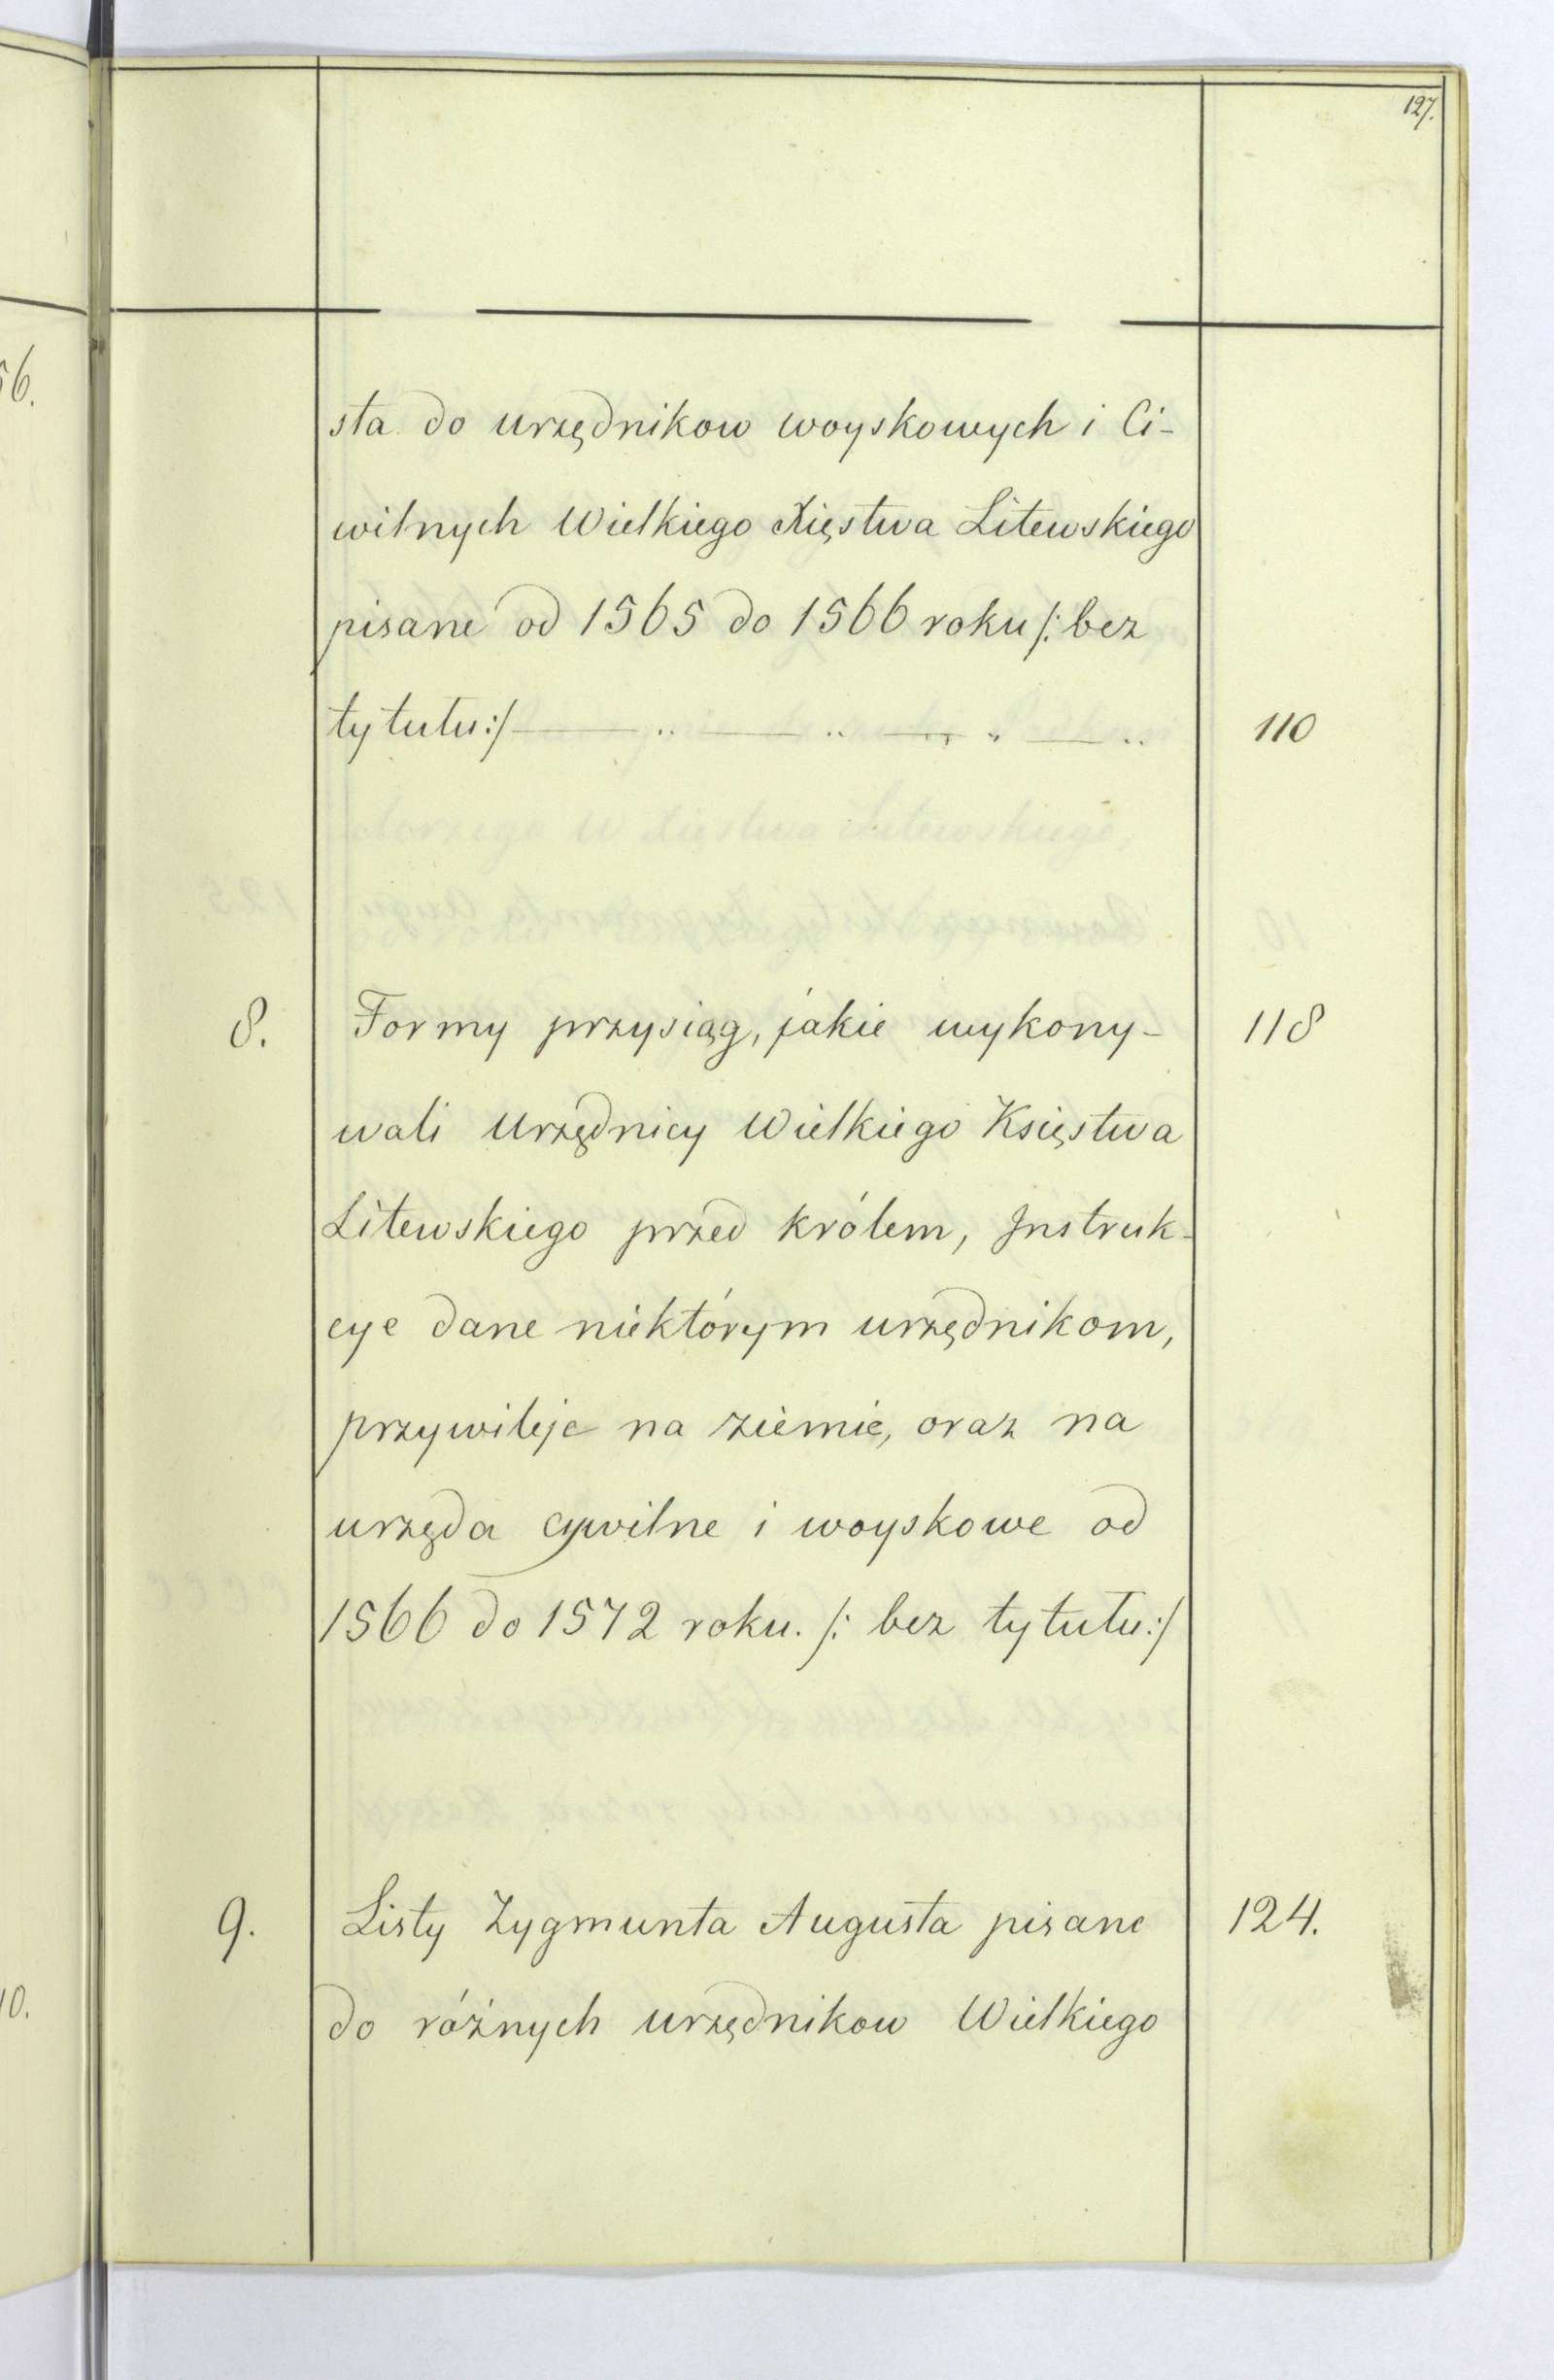 127.
56.
sta do urzędnikow woyskowych i Ci-
wilnych Wielkiego Xięstwa Litewskiego
pisane od 1565 do 1566 roku /: bez
tytułu:/ 110
8. Formy przysiąg, jakie wykony- 118
wali urzędnicy Wielkiego Księstwa
Litewskiego przed królem, Instruk-
cye dane niektórym urzędnikom,
przywileje na ziemie, oraz na
urzęda cywilne i woyskowe od
1566 do 1572 roku. /: bez tytułu:/
9. Listy Zygmunta Augusta pisane 124.
10.
do różnych urzędnikow Wielkiego